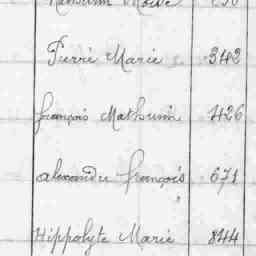 Pierre Marie 342
françois Mathurin 426
alexandre françois 671
Hippolyte Marie 844